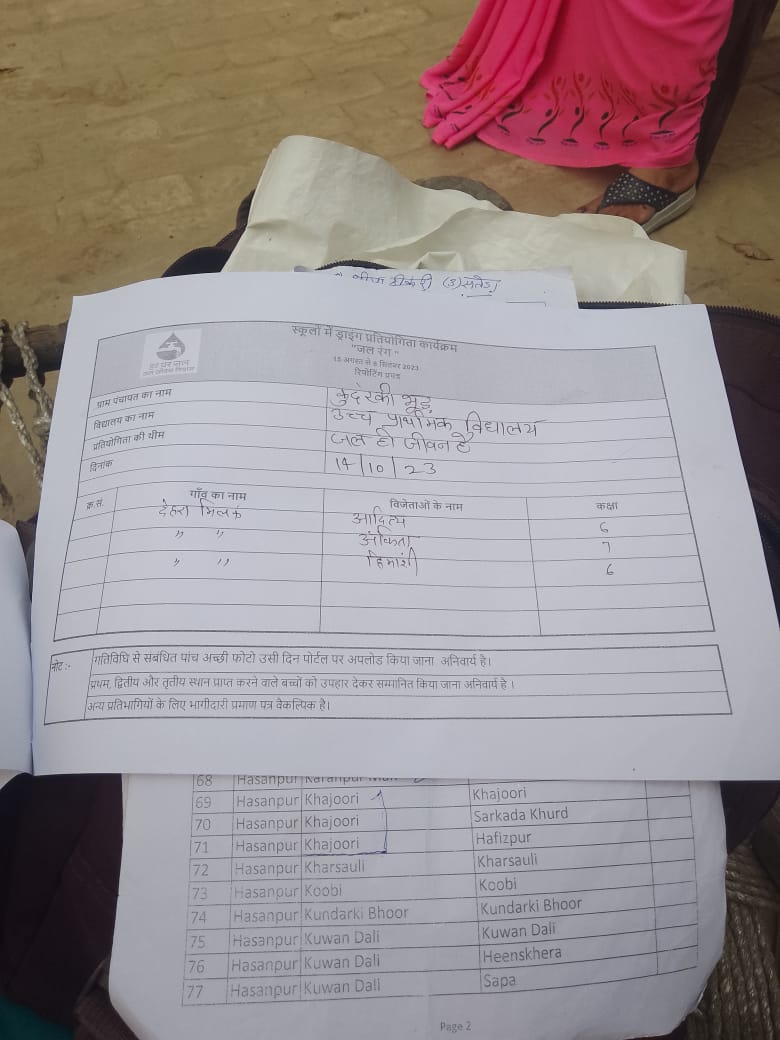 (3)
हर घर जल
जल जीवन मिशन
स्कूलों में ड्राइंग प्रतियोगिता कार्यक्रम
"जल रंग"
15 अगस्त से 8 सितंबर 2023
रिपोर्टिंग प्रपत्र
ग्राम पंचायत का नाम कुदेरकी भूड़
विद्यालय का नाम उच्च प्राथमिक विद्यालय
प्रतियोगिता की थीम जल ही जीवन है
दिनांक 14/10/23
क्र.सं. गाँव का नाम विजेताओं के नाम कक्षा
देहरा मिलक आदित्य 6
" " अंकिता 7
" " हिमांशी 6
नोट :- गतिविधि से संबंधित पांच अच्छी फोटो उसी दिन पोर्टल पर अपलोड किया जाना अनिवार्य है।
प्रथम, द्वितीय और तृतीय स्थान प्राप्त करने वाले बच्चों को उपहार देकर सम्मानित किया जाना अनिवार्य है ।
अन्य प्रतिभागियों के लिए भागीदारी प्रमाण पत्र वैकल्पिक है।
68 Hasanpur
69 Hasanpur Khajoori Khajoori
70 Hasanpur Khajoori Sarkada Khurd
71 Hasanpur Khajoori Hafizpur
72 Hasanpur Kharsauli Kharsauli
73 Hasanpur Koobi Koobi
74 Hasanpur Kundarki Bhoor Kundarki Bhoor
75 Hasanpur Kuwan Dali Kuwan Dali
76 Hasanpur Kuwan Dali Heenskhera
77 Hasanpur Kuwan Dali Sapa
Page 2